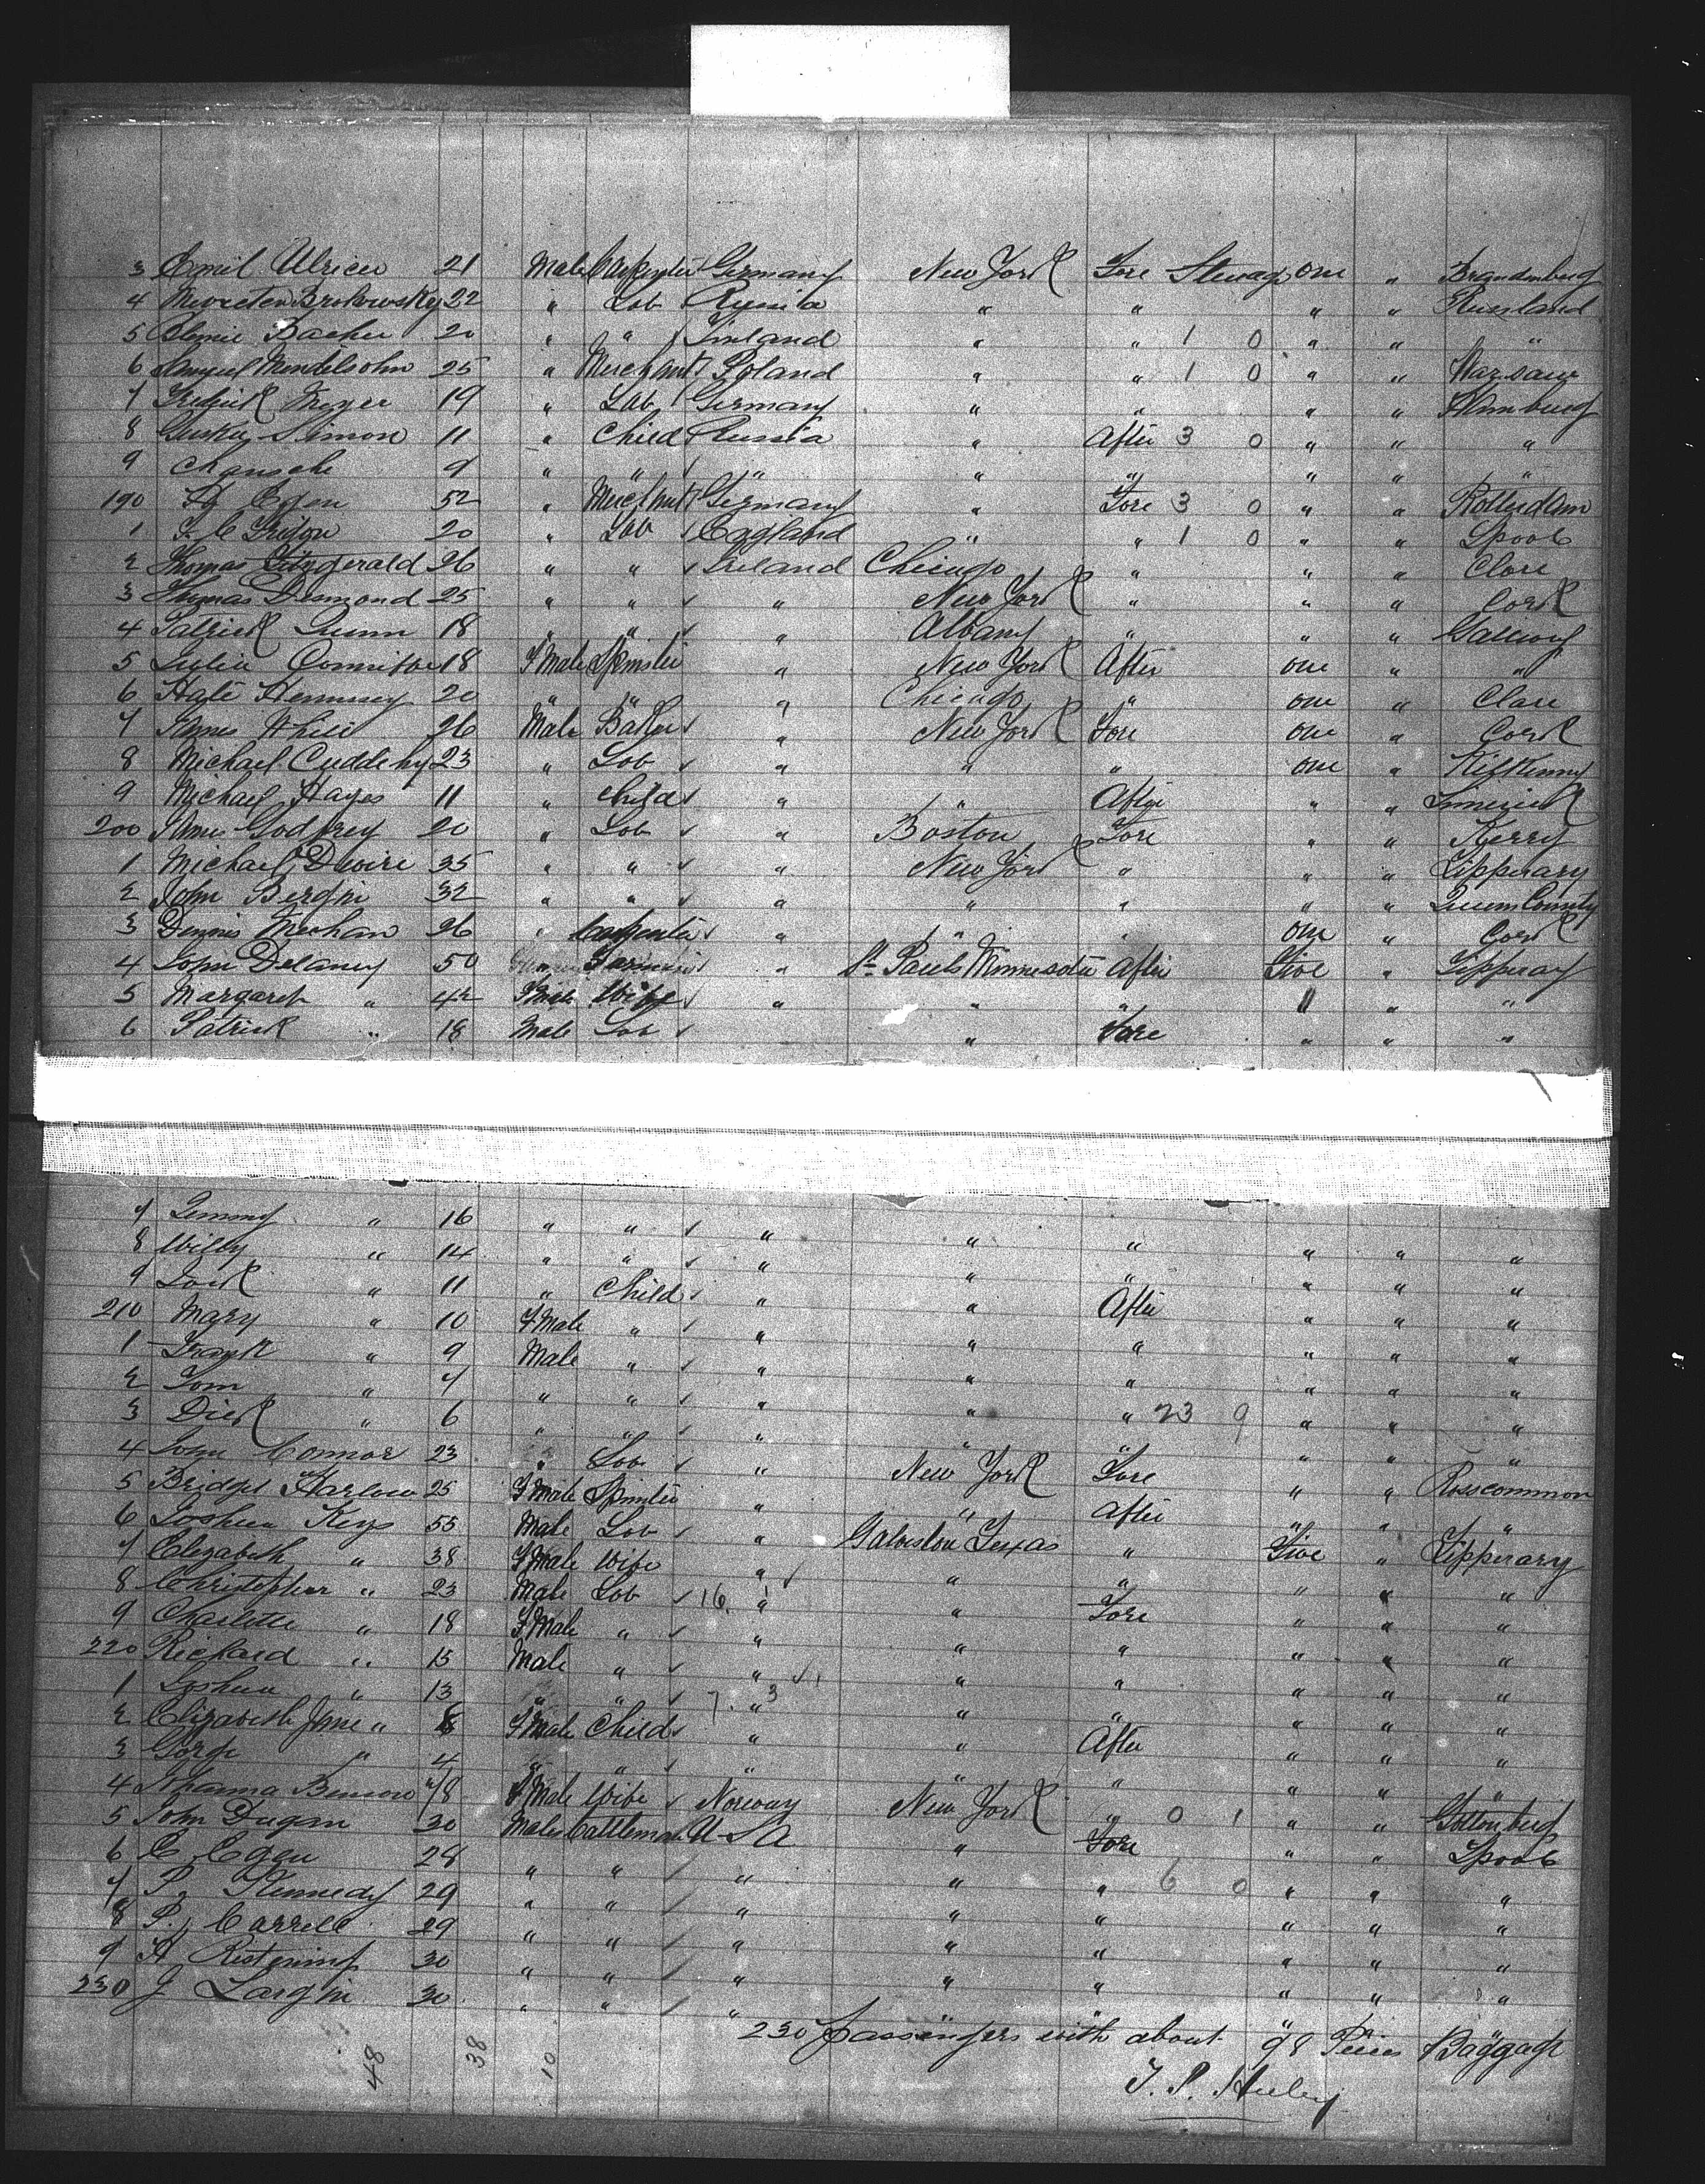 3 Emil Ulricei 21 Male Carpenter Germany New York Fore Steerage one " Brandenburg
4 Brokowsky 22 " Lab Russia " " " " Russland
5 20 " " Finland " " 1 0 " " "
6 Mendelsohn 25 " Merchant Poland " " 1 0 " " Warsaw
7 Fredrick Meyer 19 " Lab Germany " " " " Hamburg
8 Simon 11 " Child Russia " After 3 0 " " "
9 9 " " " " " " " "
190 Egen 52 " Merchant Germany " Fore 3 0 " " Rotterdam
1 20 " Lab England " " 1 0 " " Lpool
2 Thomas Fitzgerald 26 " " Ireland Chicago " " " Clare
3 Thomas Desmond 25 " " " New York " " " Cork
4 Patrick Quinn 18 " " " Albany " " " Galway
5 Julia 18 F Male Spinster " New York After one " "
6 Kate Hennesey 20 " " " Chicago " one " Clare
7 James 26 Male Baker " New York Fore one " Cork
8 Michael Cuddehy 23 " Lab " " " one " Kilkenny
9 Michael Hayes 11 " Child " " After " " Limerick
200 James Godfrey 20 " Lab " Boston Fore " " Kerry
1 Michael Dwire 35 " " " New York " " " Tipperary
2 John Bergin 32 " " " " " " " Queens County
3 Dennis Meehan 26 " Carpenter " " " one " Cork
4 John Delaney 50 " Farmer " St Pauls Minnesota After Five " Tipperay
5 Margaret " 42 F Male Wife " " " " " "
6 Patrick " 18 Male Lab " Fore " " "
7 Jemmy " 16 " " " " " " " "
8 Willy " 14 " " " " " " " "
9 Jack " 11 " Child " " After " " "
210 Mary " 10 F Male " " " " " " "
1 Frank " 9 Male " " " " " " "
2 Tom " 7 " " " " " " " "
3 Dick " 6 " " " " " 23 9 " " "
4 John Connor 23 " Lab " New York Fore " " Rosscommon
5 Bridget Harlow 25 F Male Spinster " " After " " "
6 Joshua Keys 55 Male Lab " Galveston Texas " Five " Tipperary
7 Elizabeth " 38 F Male Wife " " " " " "
8 Christopher " 23 Male Lab 16 " " Fore " " "
9 Charlotte " 18 F Male " " " " " " "
220 Richard " 15 Male " " " " " " "
1 Joshua " 13 " " 7 3 " " " " " "
2 Elizabeth Jane " 8 F Male Child " " After " " "
3 Gorge " 4 " " " " " " " "
4 Johanna 48 F Male Wife Norway New York " 0 1 " " Gottenburg
5 John Dugan 30 Male Cattleman U S A " Fore " " Lpool
6 C Egen 28 " " " " " 6 0 " " "
7 P. Kennedy 29 " " " " " " " "
8 P. Carrell 29 " " " " " " " "
9 H 30 " " " " " " " "
230 J Largin 30 " " " " " " " "
230 Passengers with about 98 Pieces Baggage
48 38 10